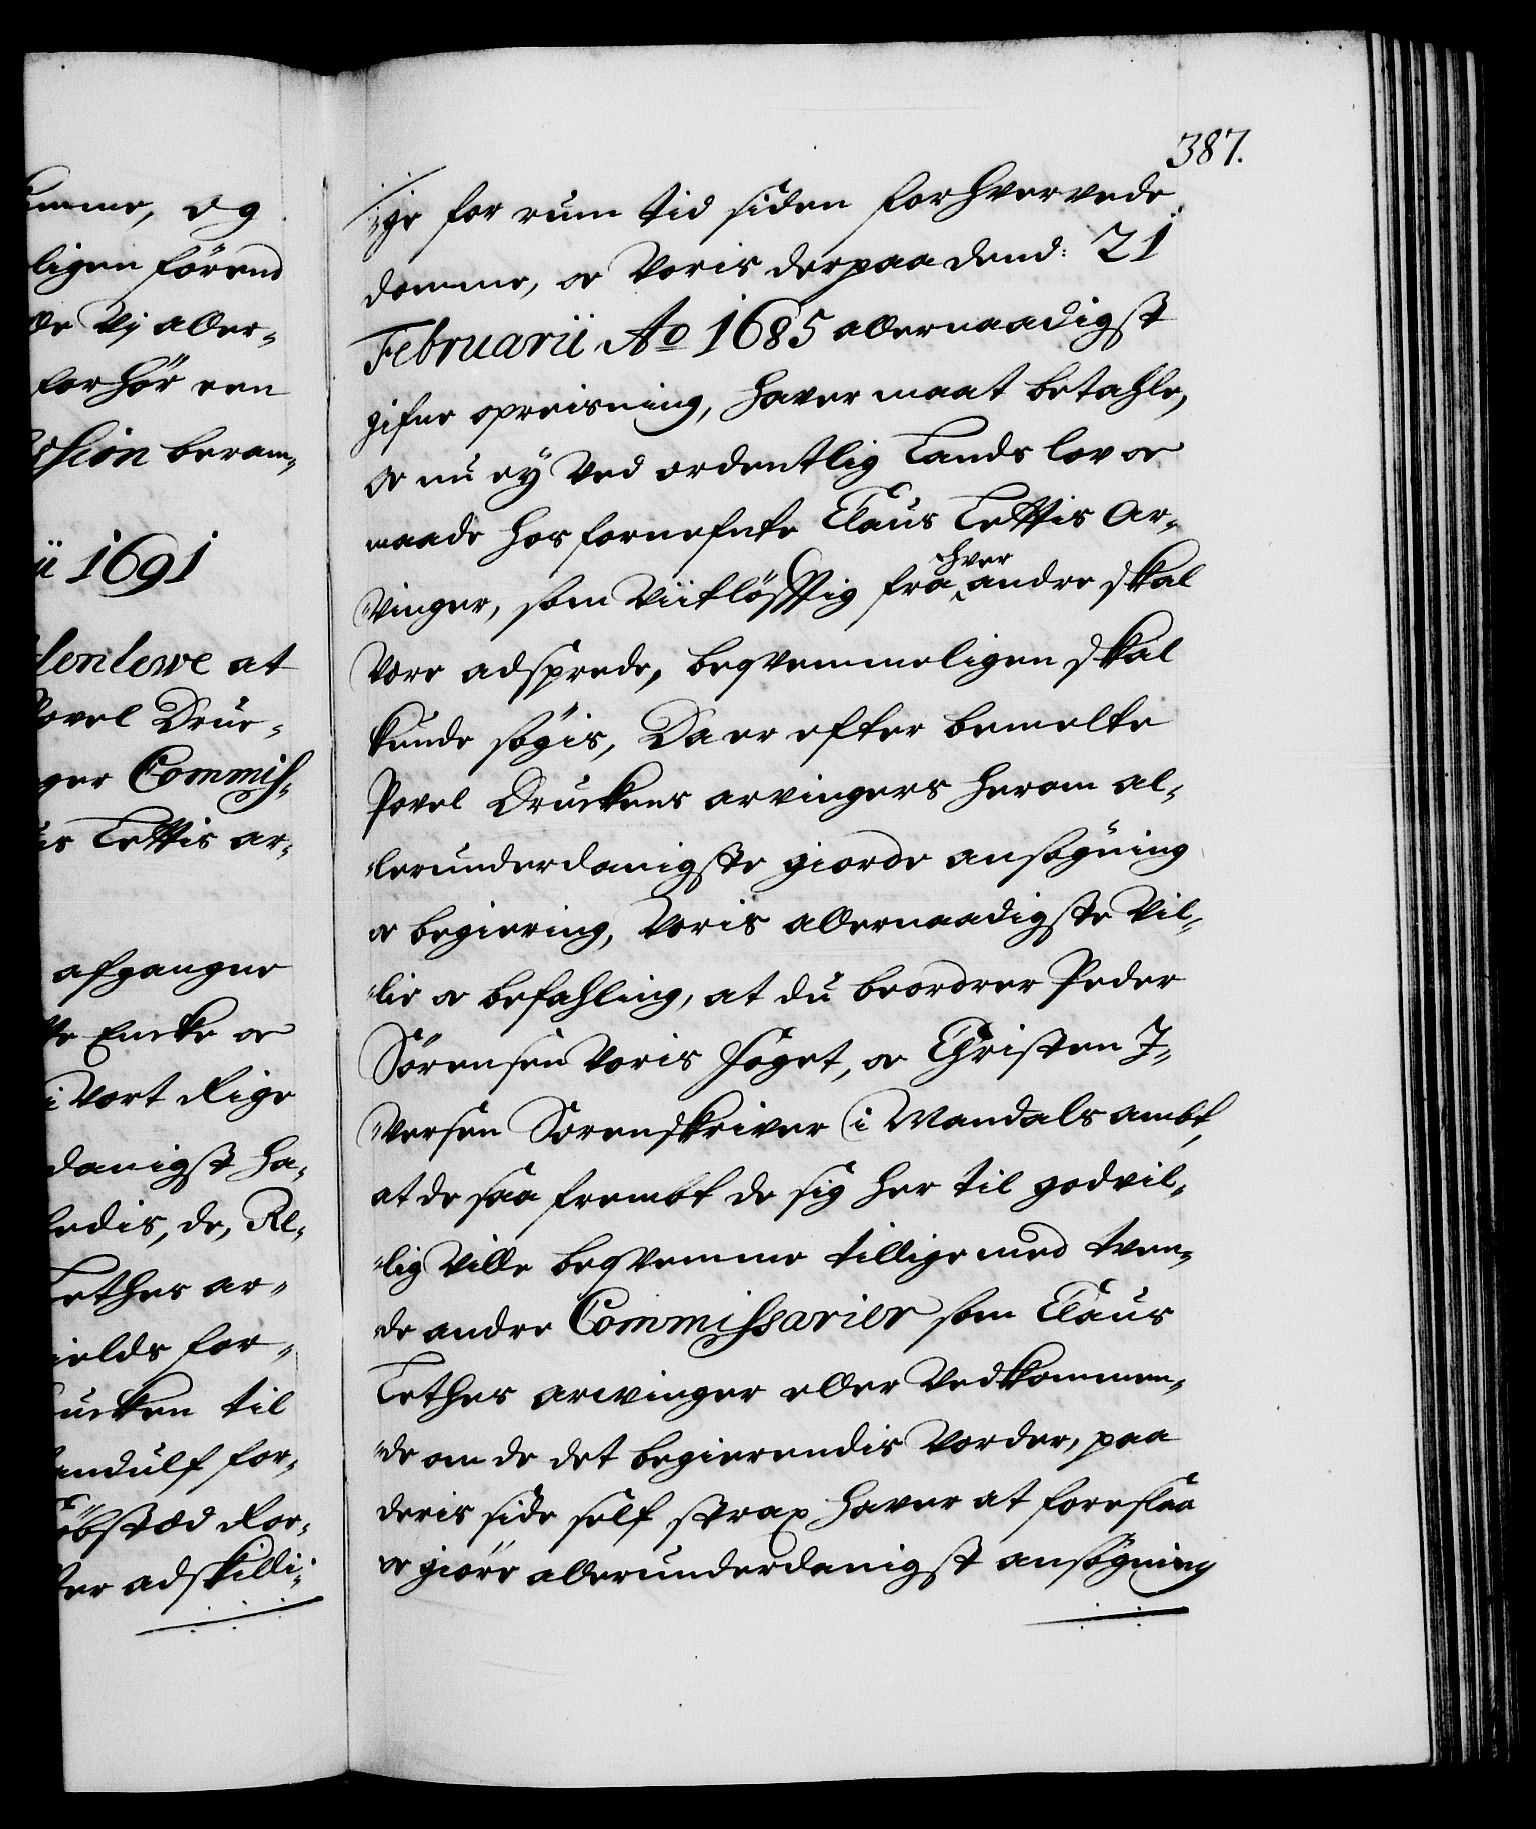 umme, og
ligen förend
de Vj aller-
forhör een
ssion beram-
ii 1691
lenlewe at
Povel Drue-
ger Commiss-
us Lettis ar-
afgangne
te Encke oc
i Vort Rige
danigst ha-
ledis, de, Re-
Lethes ar-
ields for-
ucken til
andulf for-
öbsted for-
ter adskilli-
387.
-ge for rum tid siden forhvervede
domme, oc Voris derpaa dend: 21
Februarii Ao 1685 allernaadigst
gifne opreisning, haver maat betahle,
oc nu ey Ved ordentlig Lands lov oc
maade hos fornefnte Claus Lettis Ar-
Vinger, som Viitlöfftig fra hver andre skal
Vere adsprede, beqvemmeligen skal
kunde søgis, Da er efter bemelte
Povel Druckens arvingers herom al-
lerunderdanigste giorde ansøgning
oc begiering, Voris allernaadigste Vil-
lie oc befahling, at du beordrer Peder
Sörensen Voris foget, oc Christen I-
Versen Sorenskriver i Mandals ambt,
at de saa frembt de sig her til godvil-
lig Ville beqvemme tillige med tven-
de andre Commissarier som Claus
Lethes arwinger eller Vedkommen-
de om de det begierendis Vorder, paa
deris side self strax haver at foreslaa
oc giöre allerunderdanigst ansøgning